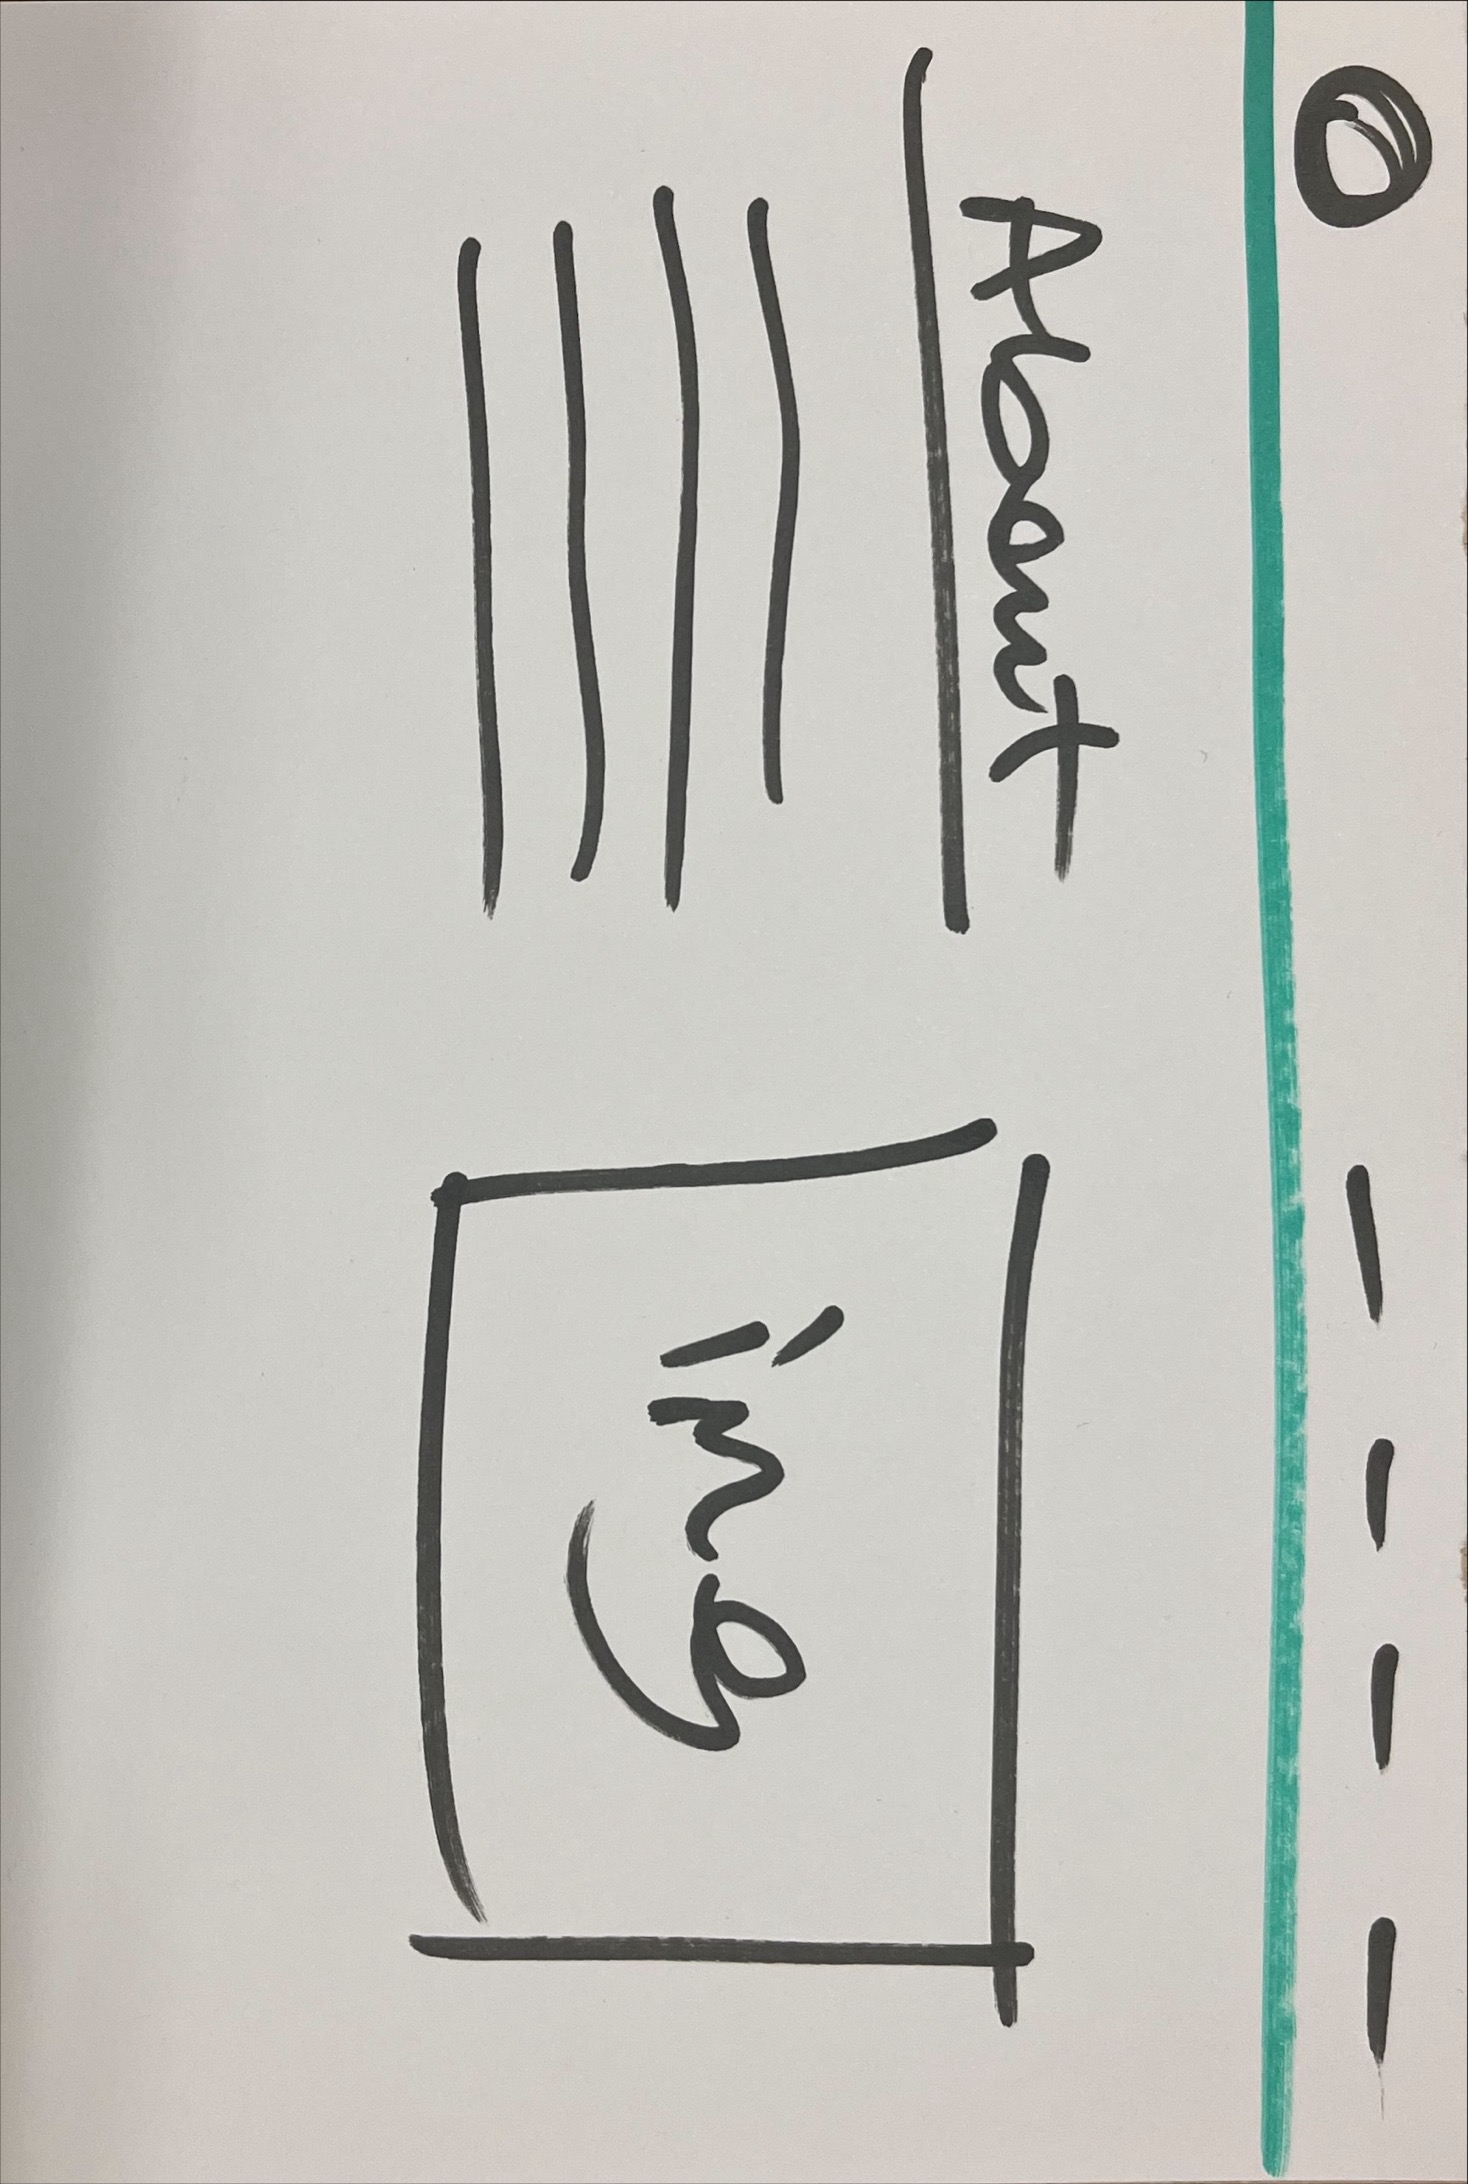 About
img